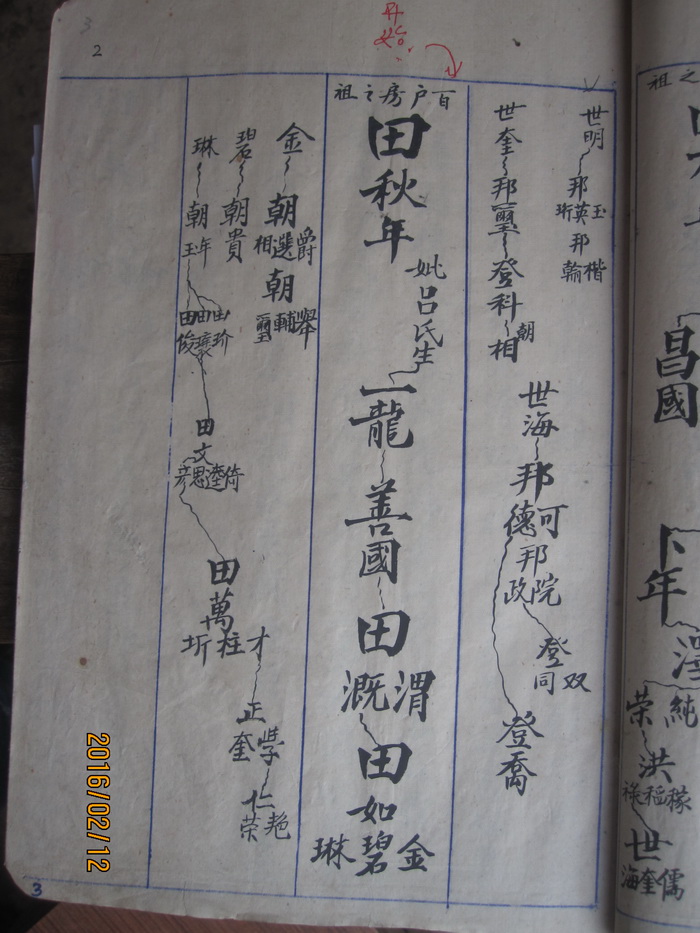 2
开始
世明
邦
玉英珩
邦
楷輪
世奎
邦璽
登科
朝相
世海
邦
可德
邦
院政
登
双同
登喬
百户房之祖
田秋年
妣吕氏生
一龍
善國
田
渭溉
田如
金碧琳
金
朝
爵選相
朝
舉輔璽
碧
朝貴
琳
朝
年玉
田玠
田
田俊
田文
倚
思彦
田萬
才柱圻
正
學奎
仁
艳荣
3
之祖
昌國
年
純荣
洪
稼稻禄
世
儒奎海
2016/02/12